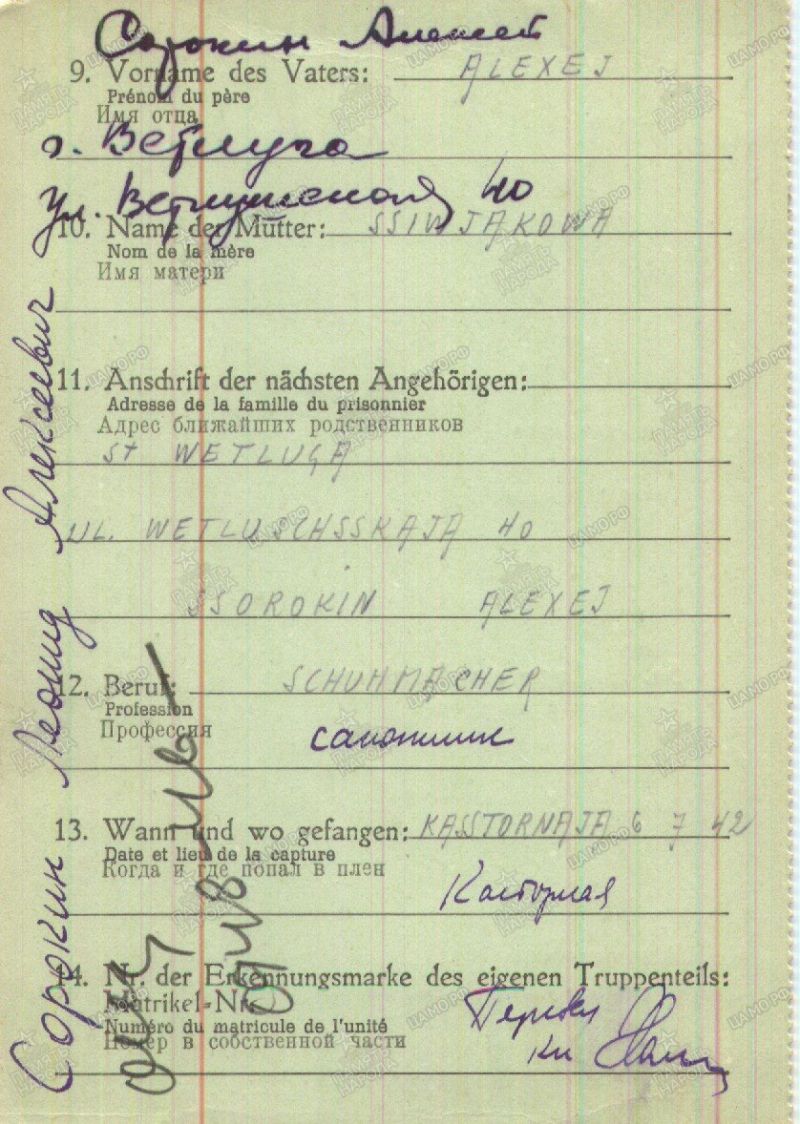 Сорокин Алексей
9. Vorname des Vaters: ALEXEJ
Prénom du père
Имя отца
г. Ветлуга
ул. Ветлужская 40
10. Name der Mutter: SSIWJAKOWA
Nom de la mère
Имя матери
11. Anschrift der nächsten Angehörigen:
Adresse de la famille du prisonnier
Адрес ближайших родственников
St WETLUGA
UL. WETLUSCHSSKAJA 40
SSOROKIN ALEXEJ
12. Beruf: SCHUHMACHER
Profession
Профессия
сапожник
13. Wann und wo gefangen: KASSTORNAJA 6 7 42
Date et lieu de la capture
Когда и где попал в плен
Касторная
14. Nr. der Erkennungsmarke des eigenen Truppenteils:
Matrikel-Nr.
Numéro du matricule de l'unité
Номер в собственной части
Перевел
Сорокин Леонид Алексеевич
ПАМЯТЬ НАРОДА
ЦАМО.РФ